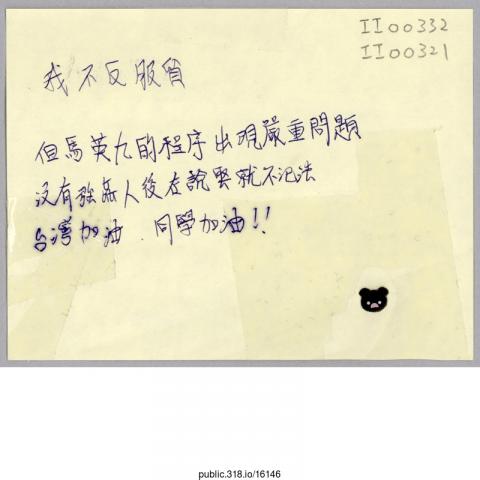 II00332
II00321
我不反服貿
但馬英九的程序出現嚴重問題
沒有強姦人後在說要就不犯法
台灣加油 同學加油!!
public.318.io/16146